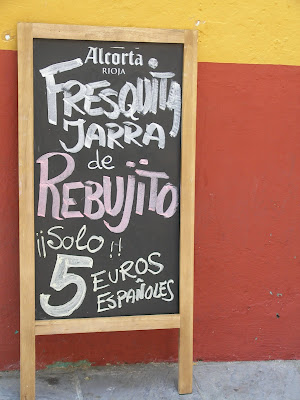 Alcorta
RIOJA
FRESQUITA
JARRA
de
REBUJITO
¡¡Solo!!
5 EUROS
ESPAÑOLES